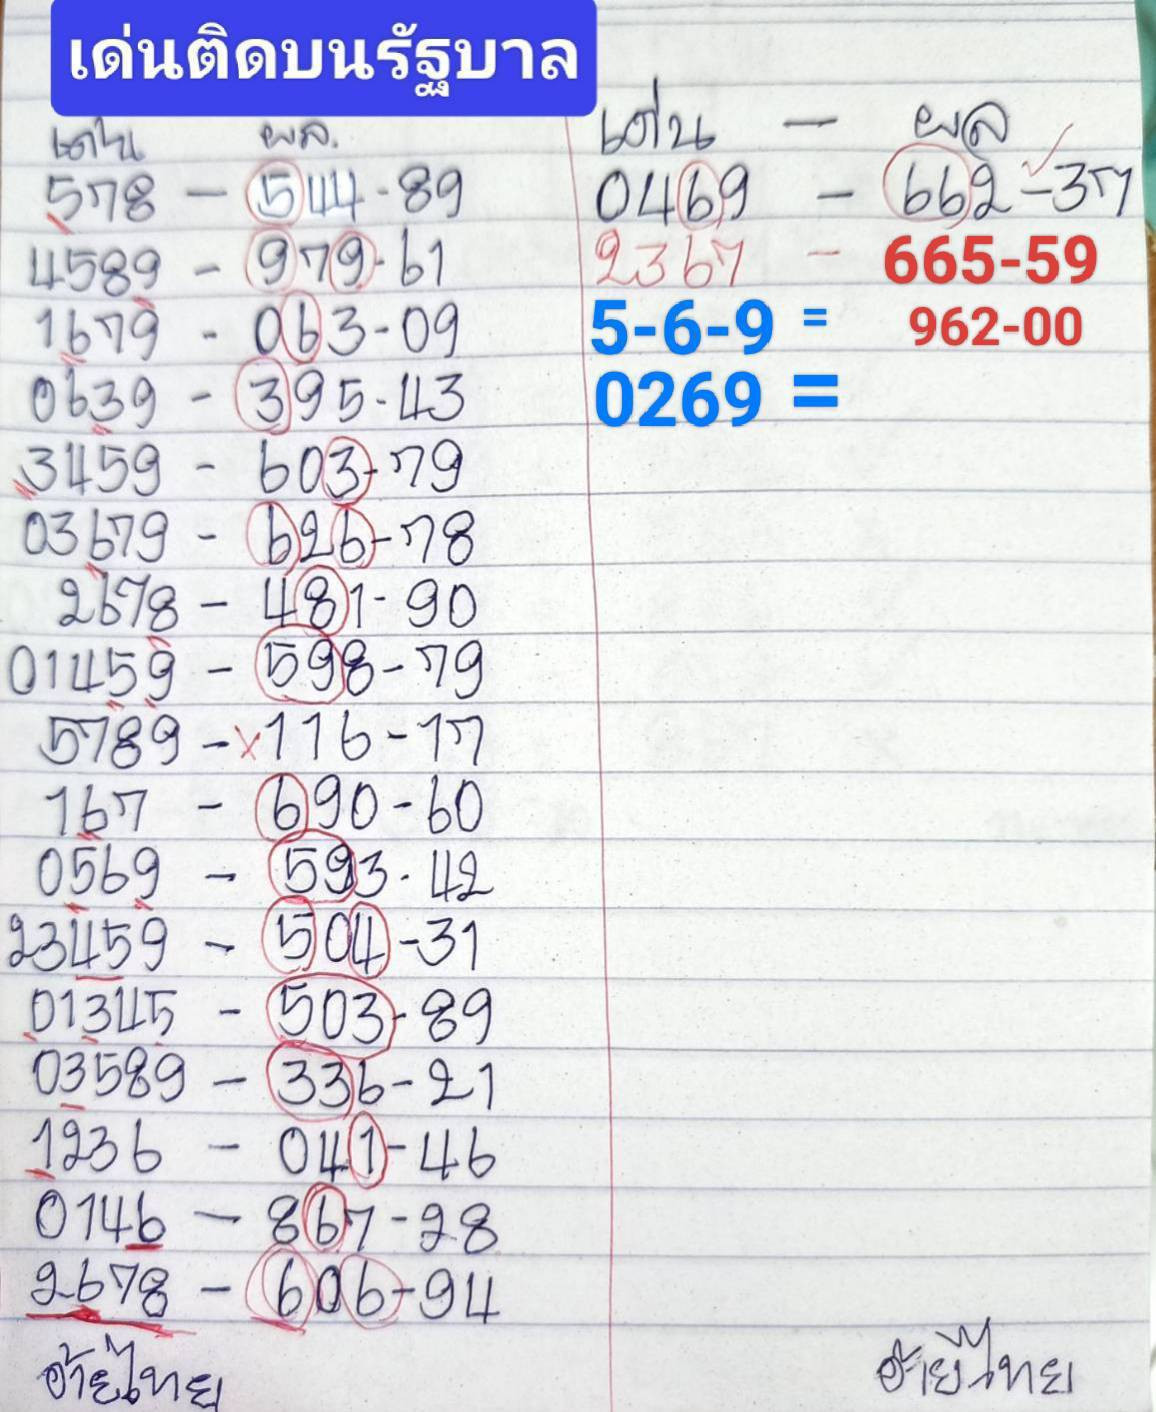 เด่นติดบนรัฐบาล
เด่น ผล.
578 - 544-89
4589 - 979-61
1679 - 063-09
0639 - 395-43
3459 - 603-79
03679 - 626-78
2678 - 481-90
01459 - 598-79
5789 -x116-17
167 - 690-60
0569 - 593-42
23459 - 504-31
01345 - 503-89
03589 - 336-21
1236 - 041-46
0146 - 867-28
2678 - 606-94
อ้ายไทย
เด่น - ผล
0469 - 662-37
2367 - 665-59
5-6-9 = 962-00
0269 =
อ้ายไทย